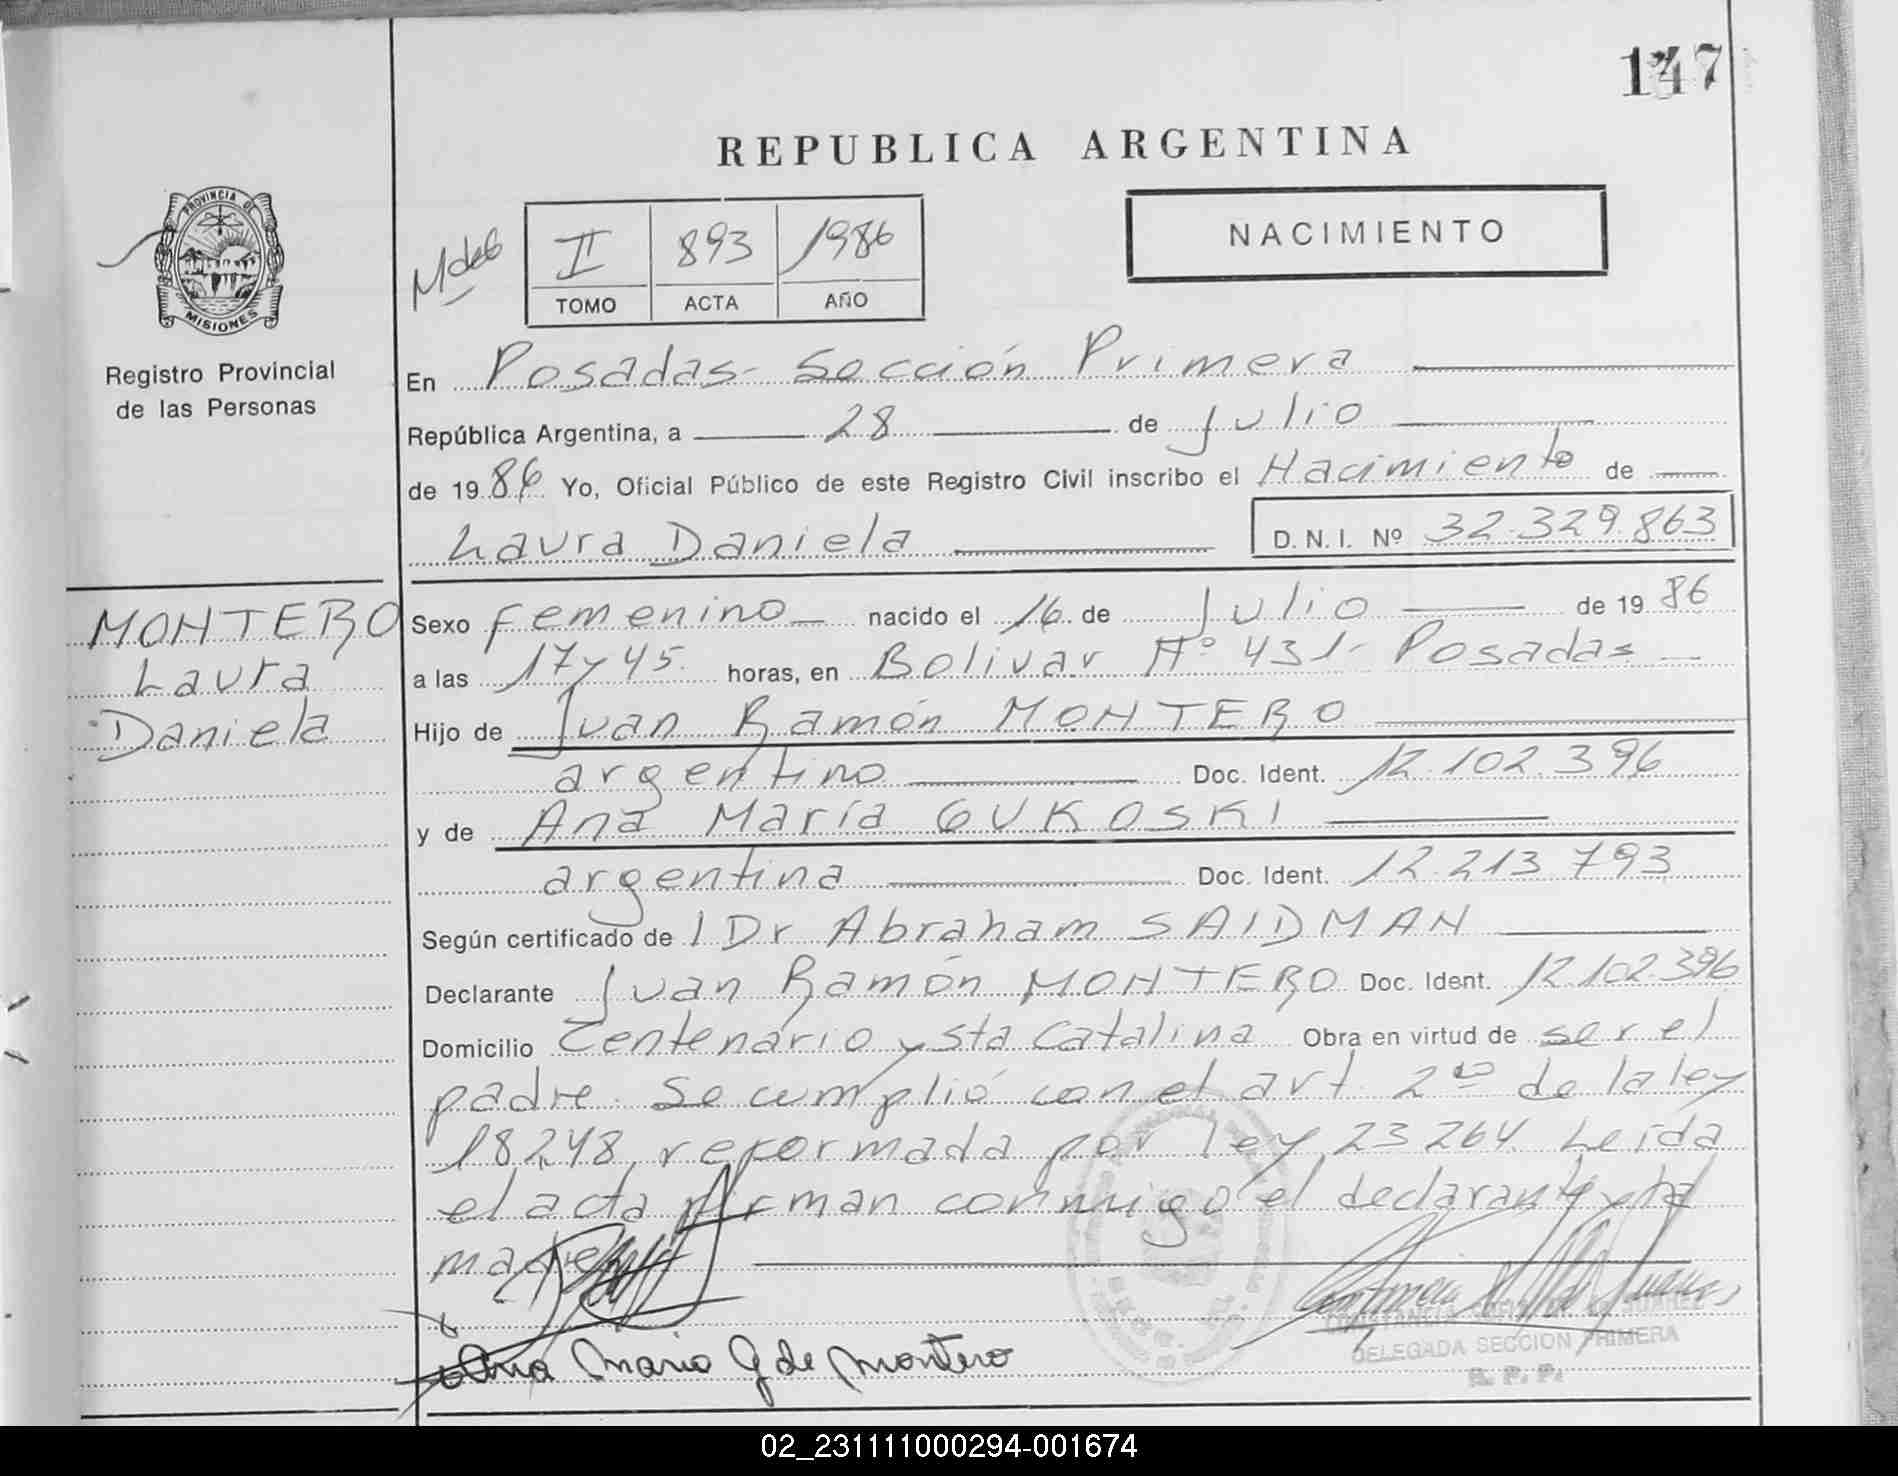 147
REPUBLICA ARGENTINA
PROVINCIA DE
MISIONES
Registro Provincial
de las Personas
II 893 1986
TOMO ACTA AÑO
NACIMIENTO
En Posadas- Sección Primera
República Argentina, a 28 de Julio
de 1986 Yo, Oficial Público de este Registro Civil inscribo el Nacimiento de
Laura Daniela D. N. I. Nº 32.329.863
MONTERO
Laura
Daniela
Sexo Femenino nacido el 16 de Julio de 1986
a las 17 y 45. horas, en Bolivar Nº 431- Posadas
Hijo de Juan Ramón MONTERO
argentino Doc. Ident. 12.102.396
y de Ana María GUKOSKI
argentina Doc. Ident. 12.213.793
Según certificado de l Dr Abraham SAIDMAN
Declarante Juan Ramón MONTERO Doc. Ident. 12.102.396
Domicilio Centenario y Sta Catalina Obra en virtud de ser el
padre. Se cumplió con el art. 2º de la ley
18.248, reformada por ley 23.264. Leída
el acta firman conmigo el declarante y la
madre
Ana Maria G de Montero
DELEGADA SECCION PRIMERA
R. P. P.
02_231111000294-001674